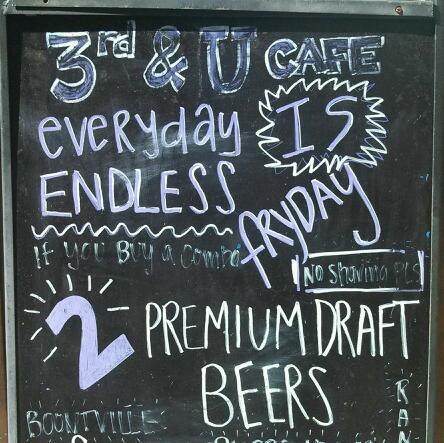 3rd & U CAFE
everyday IS
ENDLESS FRYDAY
If you Buy a Combo
No Sharing PLS
2 PREMIUM DRAFT
BEERS
BOONTVILLE
RAN